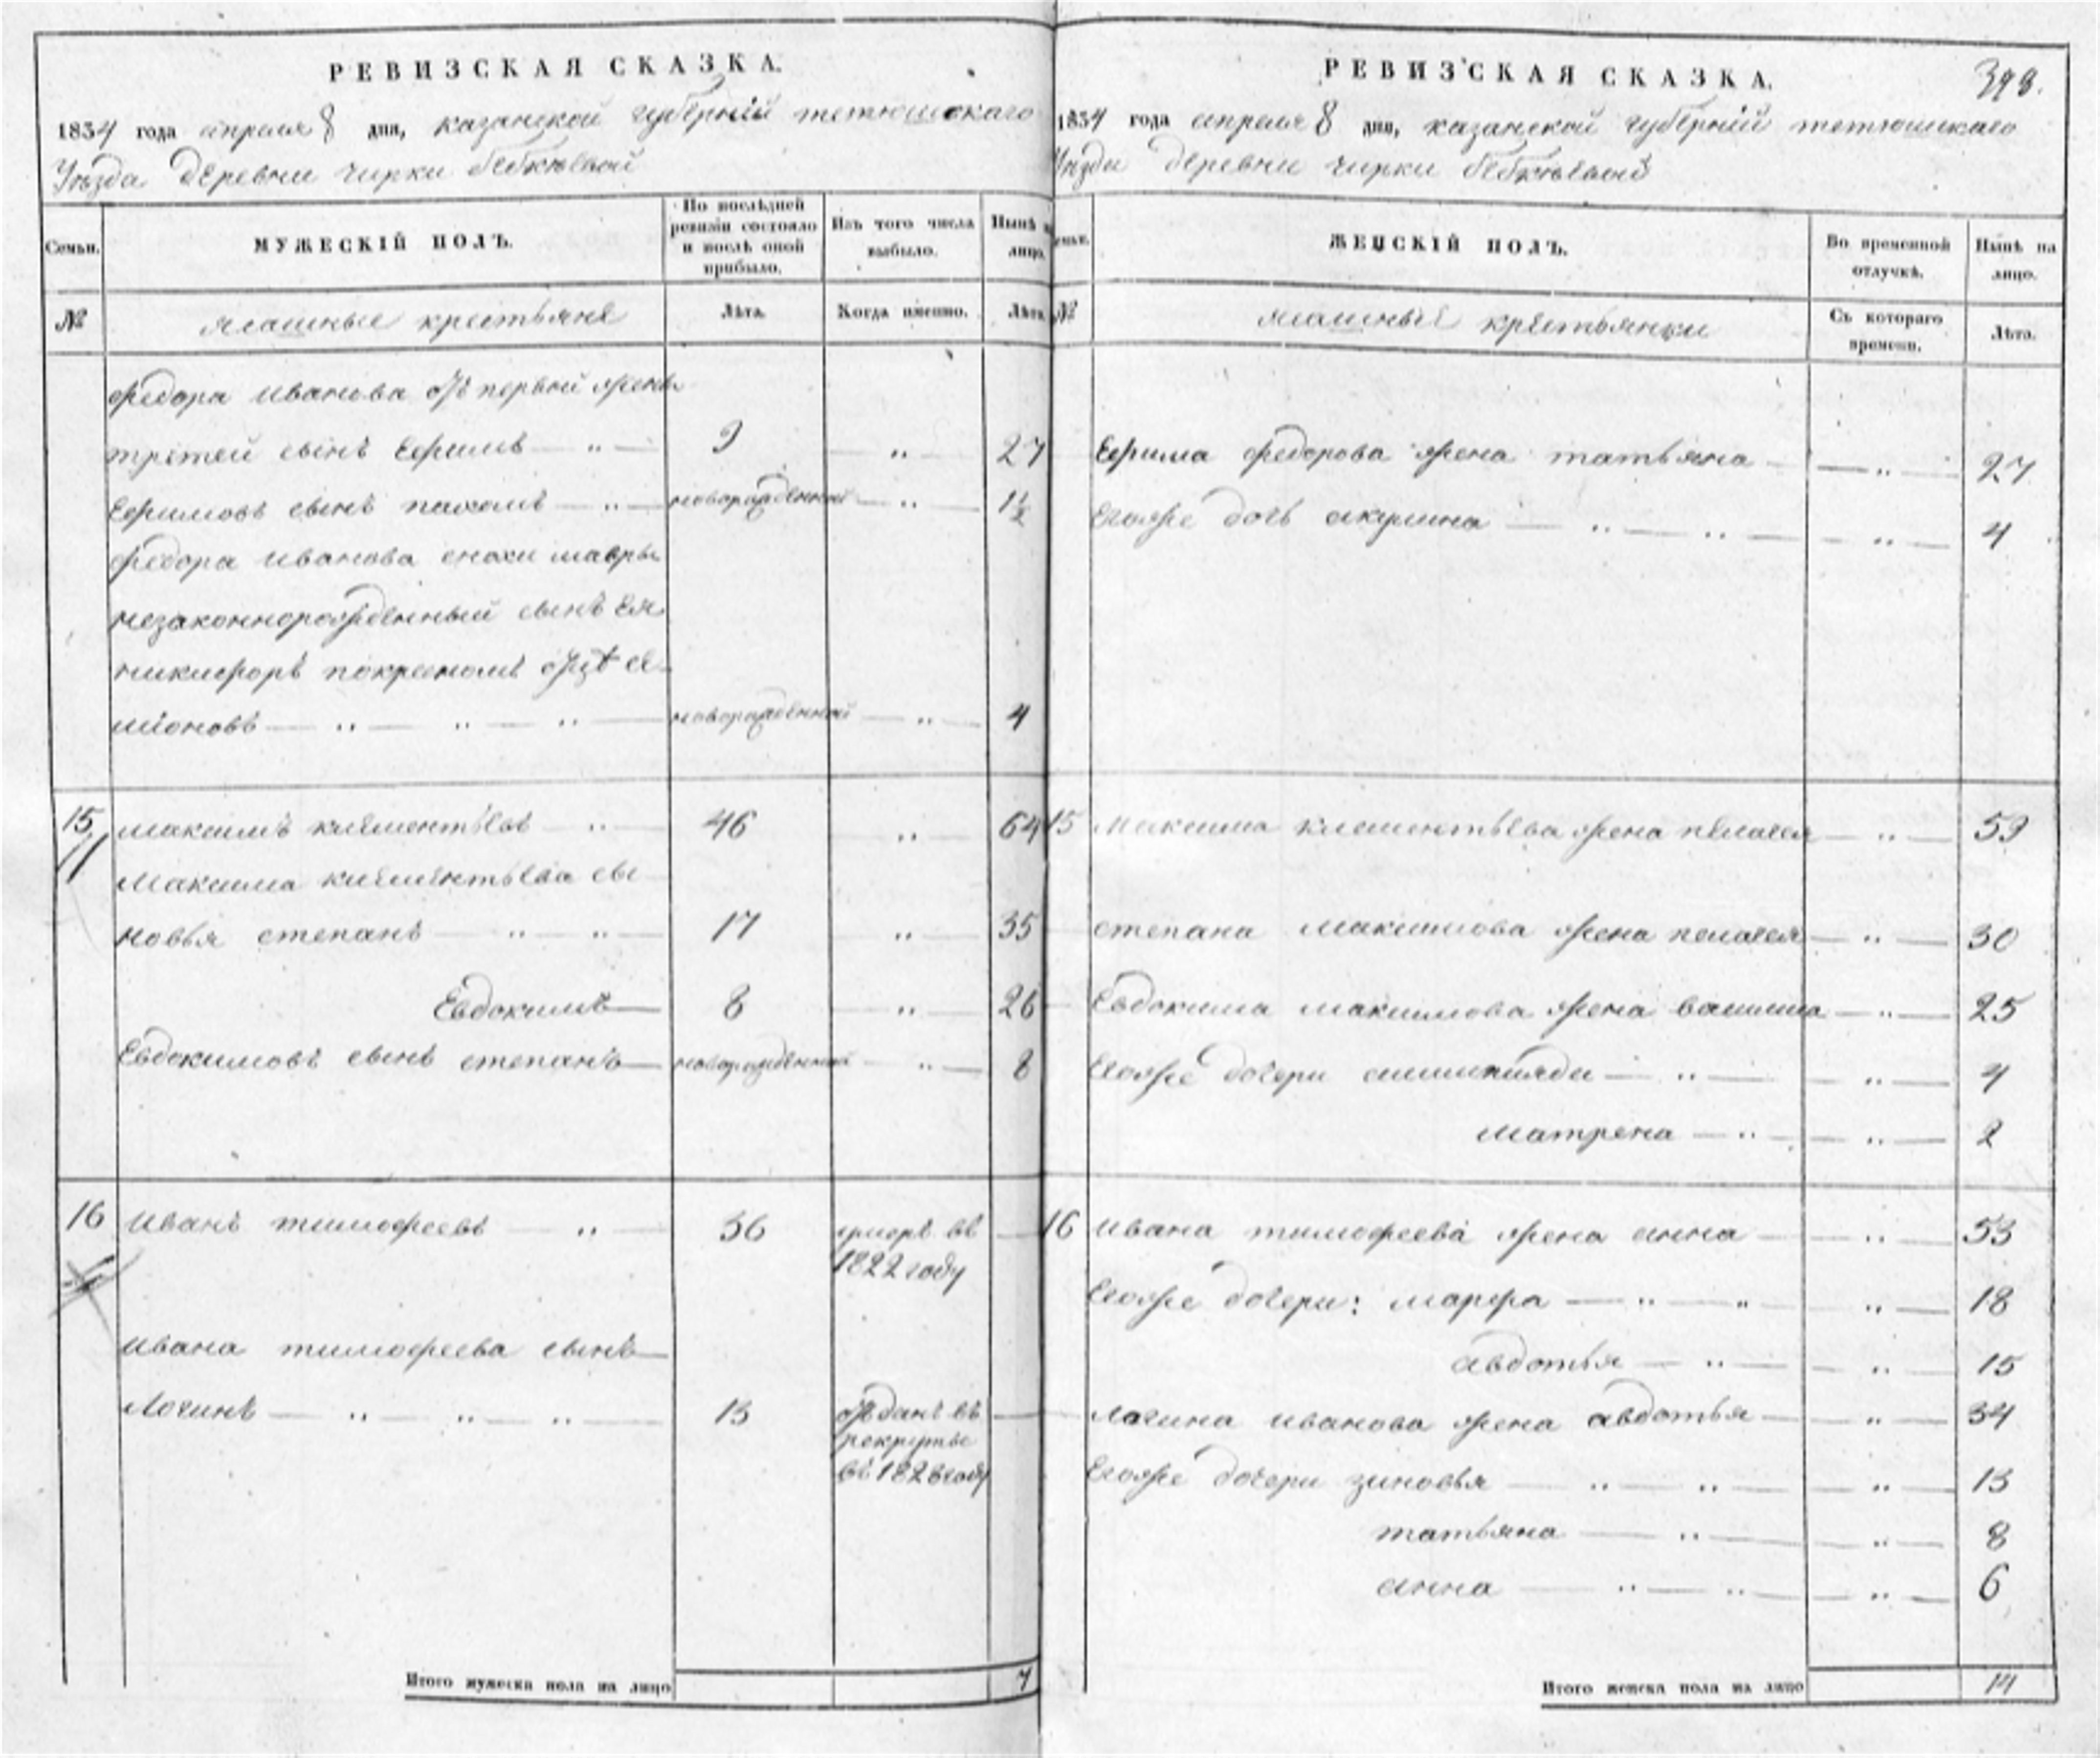 РЕВИЗСКАЯ СКАЗКА.
1834 года апреля 8 дня, казанской губернiй тетюшскаго
Уѣзда деревни чирки бебкѣевой
Семьи.
МУЖЕСКІЙ ПОЛЪ.
По послѣдней ревизіи состояло и послѣ оной прибыло.
Изъ того числа выбыло.
Нынѣ на лицо.
№
ясашные крестьяне
Лѣта.
Когда именно.
Лѣта
федора иванова отъ первой жены
третей сынъ Ефимъ — „ — 9 — „ — 27
Ефимовъ сынъ пахомъ — „ — новорожденной — „ — 1½
федора иванова снохи мавры
незаконнорожденный сынъ Ея
никифоръ покрестномъ отцѣ се-
мiоновъ — „ — „ — „ — новорожденной — „ — 4
15 максимъ клементьевъ — „ 46 „ — 64
Максима клементьева сы
новья степанъ — „ — „ — 17 „ — 35
Евдокимъ — 8 — „ — 26
Евдокимовъ сынъ степанъ — новорожденной — „ — 8
16 иванъ тимофеевъ — „ — 36 умеръ въ —
1822 году
ивана тимофеева сынъ —
Логинъ — „ — „ — „ — 13 отданъ въ —
рекруты
въ 1828 году
Итого мужеска пола на лицо 7
РЕВИЗСКАЯ СКАЗКА. 398.
1834 года апреля 8 дня, казанской губернiй тетюшскаго
Уѣзда деревни чирки бебкѣевой
ЖЕНСКІЙ ПОЛЪ.
Во временной отлучкѣ.
Нынѣ на лицо.
№
ясашные крестьянки
Съ котораго времени.
Лѣта.
Ефима федорова жена татьяна — — „ — 27
Егоже дочь акулина — „ — „ — — „ — 4
15 Максима клементьева жена пелагея — „ — 59
степана максимова жена пелагея — „ — 30
Евдокима максимова жена — „ — 25
Егоже дочери — „ — — „ — 4
матрена — „ — — „ — 2
16 ивана тимофеева жена анна — — „ — 53
Егоже дочери: марфа — „ — „ „ — 18
авдотья — „ — — „ — 15
логина иванова жена авдотья — — „ — 34
Егоже дочери зиновья — „ — „ — — „ — 13
татьяна — „ — — „ — 8
анна — „ — „ — — „ — 6
Итого женска пола на лицо 14